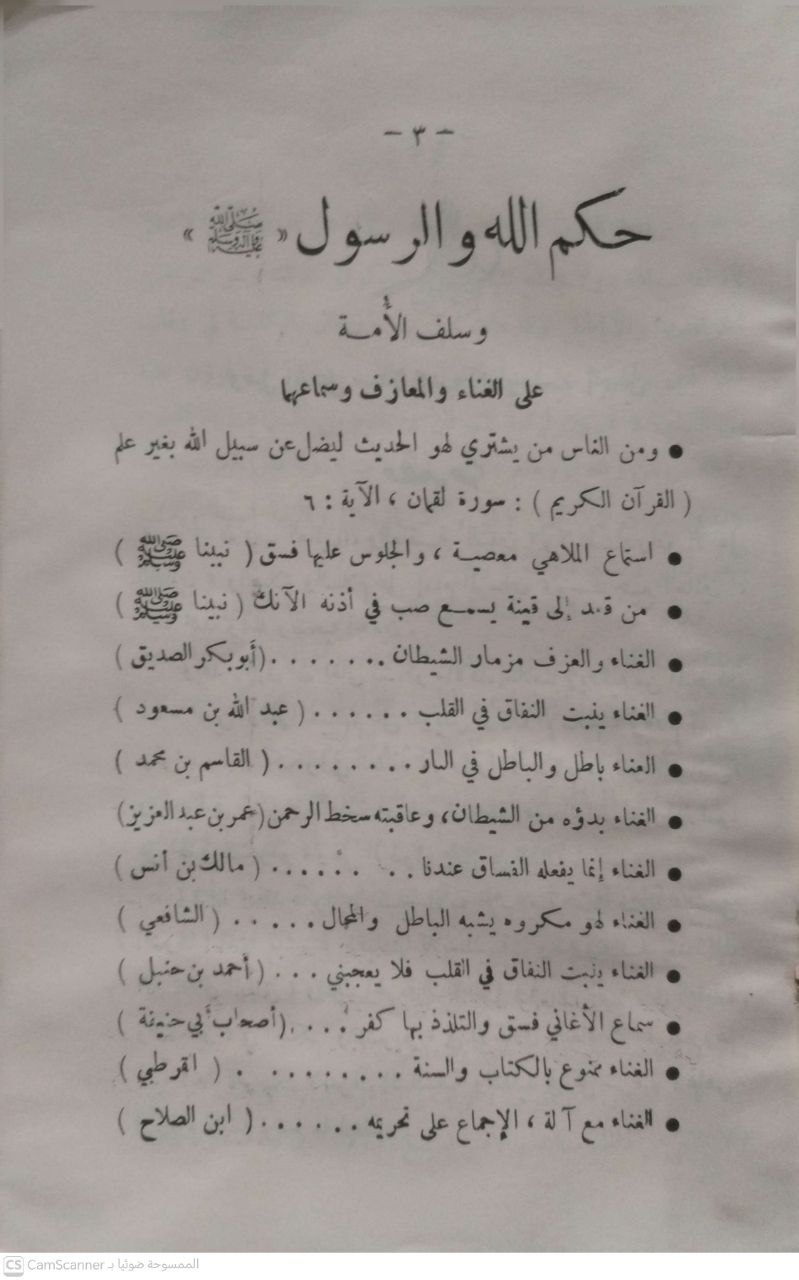 - ٣ -
حكم الله والرسول « ﷺ »
وسلف الأمة
على الغناء والمعازف وسماعها
● ومن الناس من يشتري لهو الحديث ليضل عن سبيل الله بغير علم
( القرآن الكريم ) : سورة لقمان ، الآية : ٦
● استماع الملاهي معصية ، والجلوس عليها فسق ( نبينا ﷺ )
● من قعد إلى قينة يسمع صب في أذنه الآنك ( نبينا ﷺ )
● الغناء والعزف مزمار الشيطان . . . . . . . (أبو بكر الصديق )
● الغناء ينبت النفاق في القلب . . . . . . ( عبد الله بن مسعود )
● الغناء باطل والباطل في النار . . . . . . . . ( القاسم بن محمد )
● الغناء بدؤه من الشيطان، وعاقبته سخط الرحمن (عمر بن عبد العزيز)
● الغناء إنما يفعله الفساق عندنا . . . . . . . . ( مالك بن أنس )
● الغناء لهو مكروه يشبه الباطل والمحال . . . . . ( الشافعي )
● الغناء ينبت النفاق في القلب فلا يعجبني . . . ( أحمد بن حنبل )
● سماع الأغاني فسق والتلذذ بها كفر . . . . (أصحاب أبي حنيفة )
● الغناء ممنوع بالكتاب والسنة . . . . . . . . . ( القرطبي )
● الغناء مع آلة ، الإجماع على تحريمه . . . . . . ( ابن الصلاح )
CS CamScanner الممسوحة ضوئيا بـ